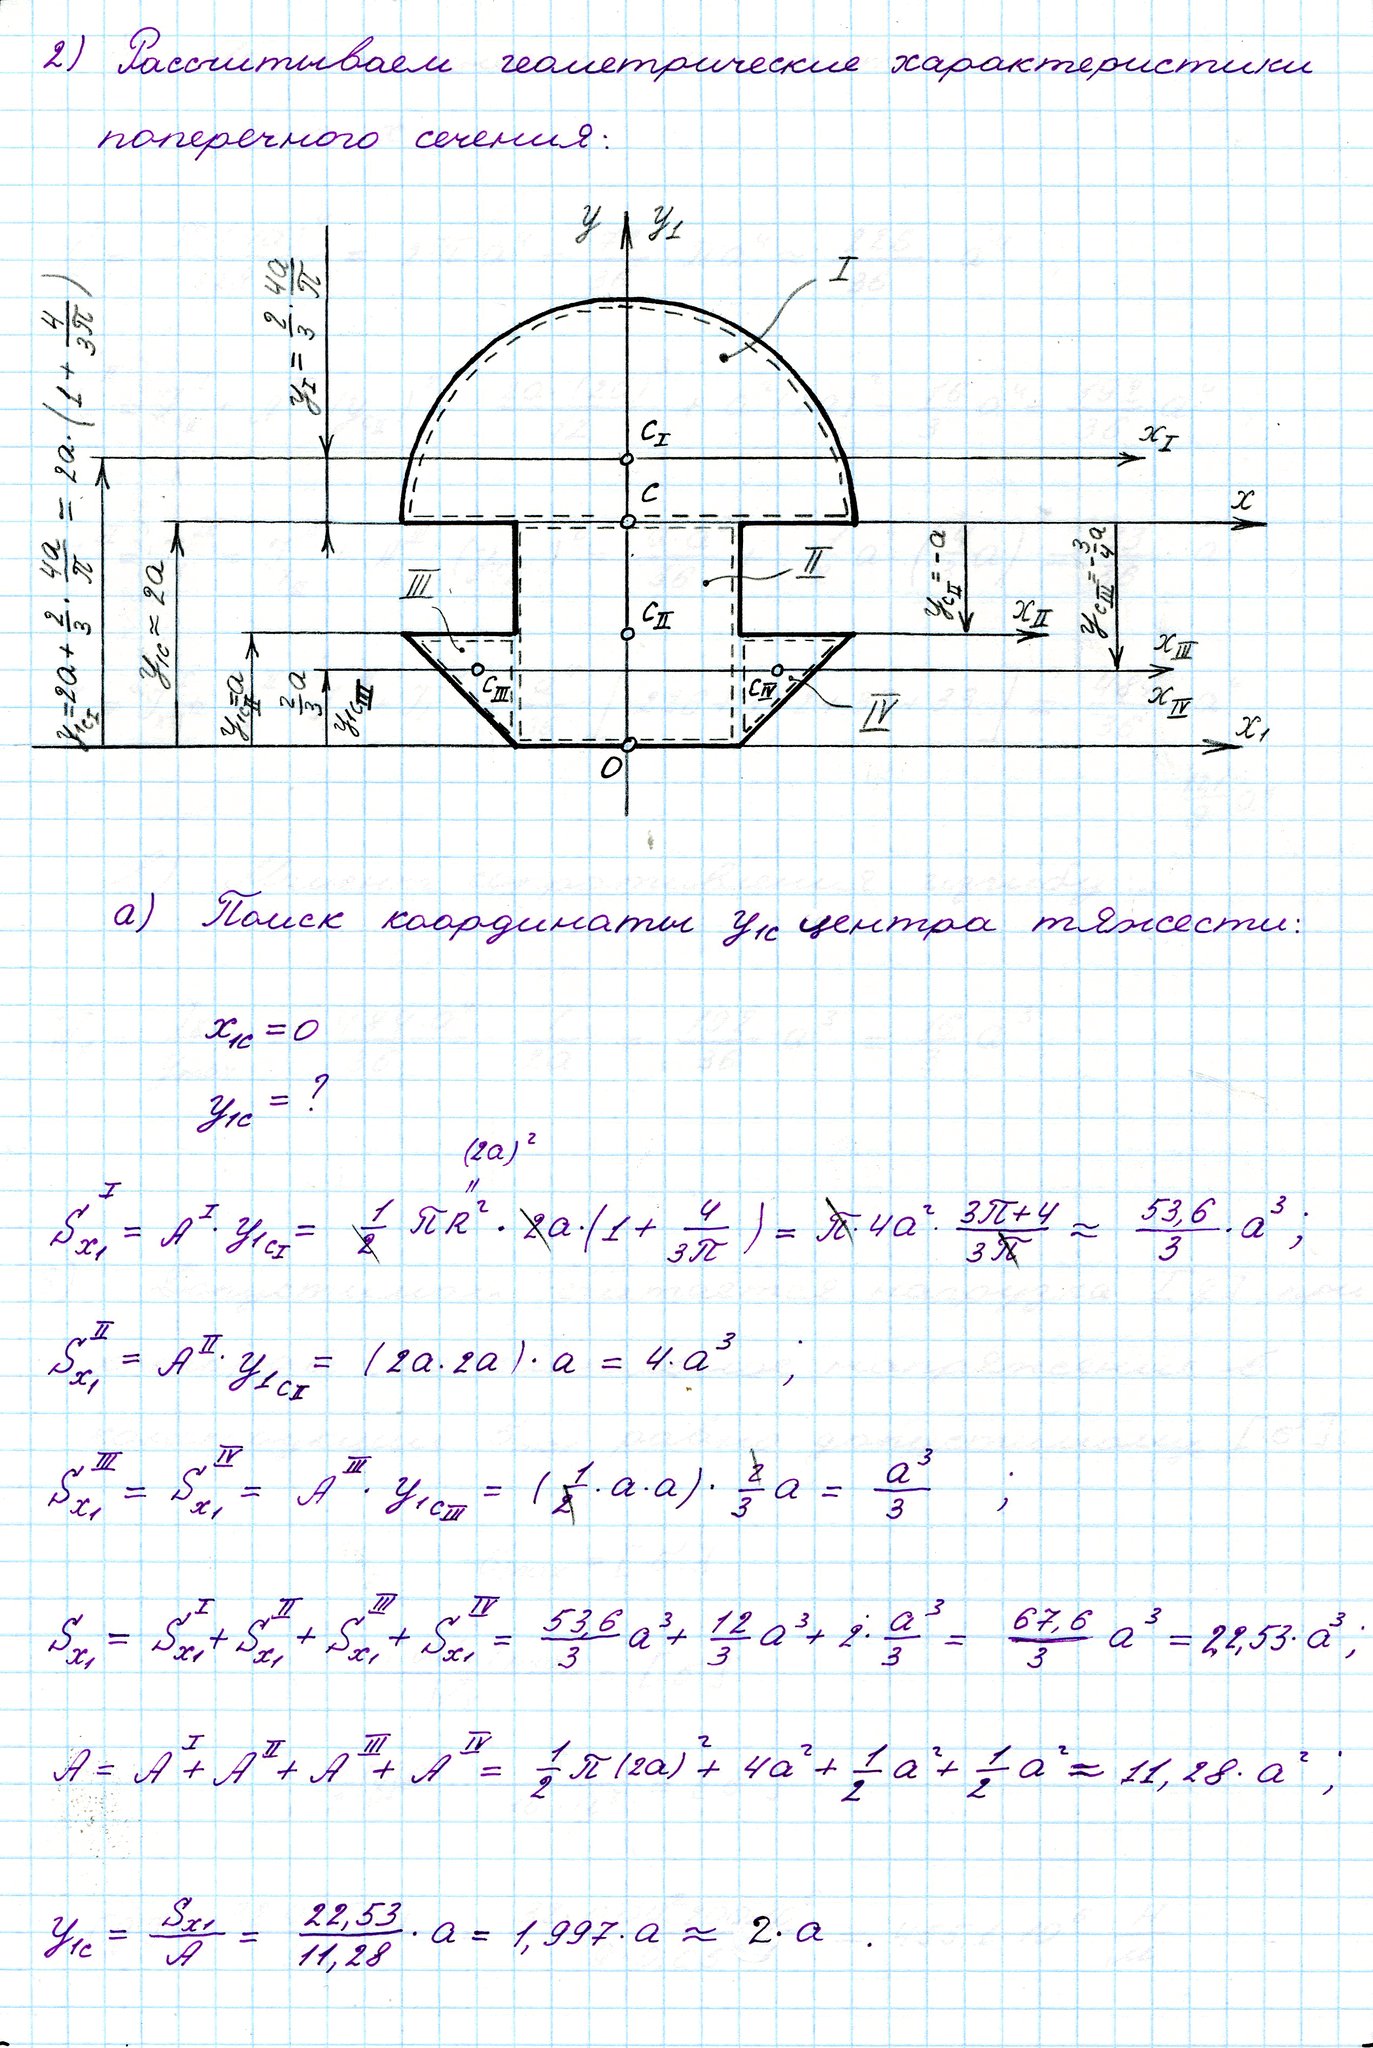 2) Рассчитываем геометрические характеристики
поперечного сечения:
y y₁
I
y_I = 2/3 · 4a/π
y₁c_I = 2a + 2/3 · 4a/π = 2a · (1 + 4/3π)
y₁c ≈ 2a
c_I
x_I
c
x
III
II
y_cII = -a
y_cIII = -3/4 a
c_II
x_II
y₁c_II = a
2/3 a
y₁c_III
c_III
c_IV
x_III
x_IV
IV
O
x₁
а) Поиск координаты y₁c центра тяжести:
x₁c = 0
y₁c = ?
(2a)²
"
S_x₁^I = A^I · y₁c_I = 1/2 πR² · 2a · (1 + 4/3π) = π · 4a² · (3π+4)/3π ≈ 53,6/3 · a³ ;
S_x₁^II = A^II · y₁c_I = (2a · 2a) · a = 4 · a³ ;
S_x₁^III = S_x₁^IV = A^III · y₁c_III = (1/2 · a · a) · 2/3 a = a³/3 ;
S_x₁ = S_x₁^I + S_x₁^II + S_x₁^III + S_x₁^IV = 53,6/3 a³ + 12/3 a³ + 2 · a³/3 = 67,6/3 a³ = 22,53 · a³ ;
A = A^I + A^II + A^III + A^IV = 1/2 π(2a)² + 4a² + 1/2 a² + 1/2 a² ≈ 11,28 · a² ;
y₁c = S_x₁/A = 22,53/11,28 · a = 1,997 · a ≈ 2 · a .